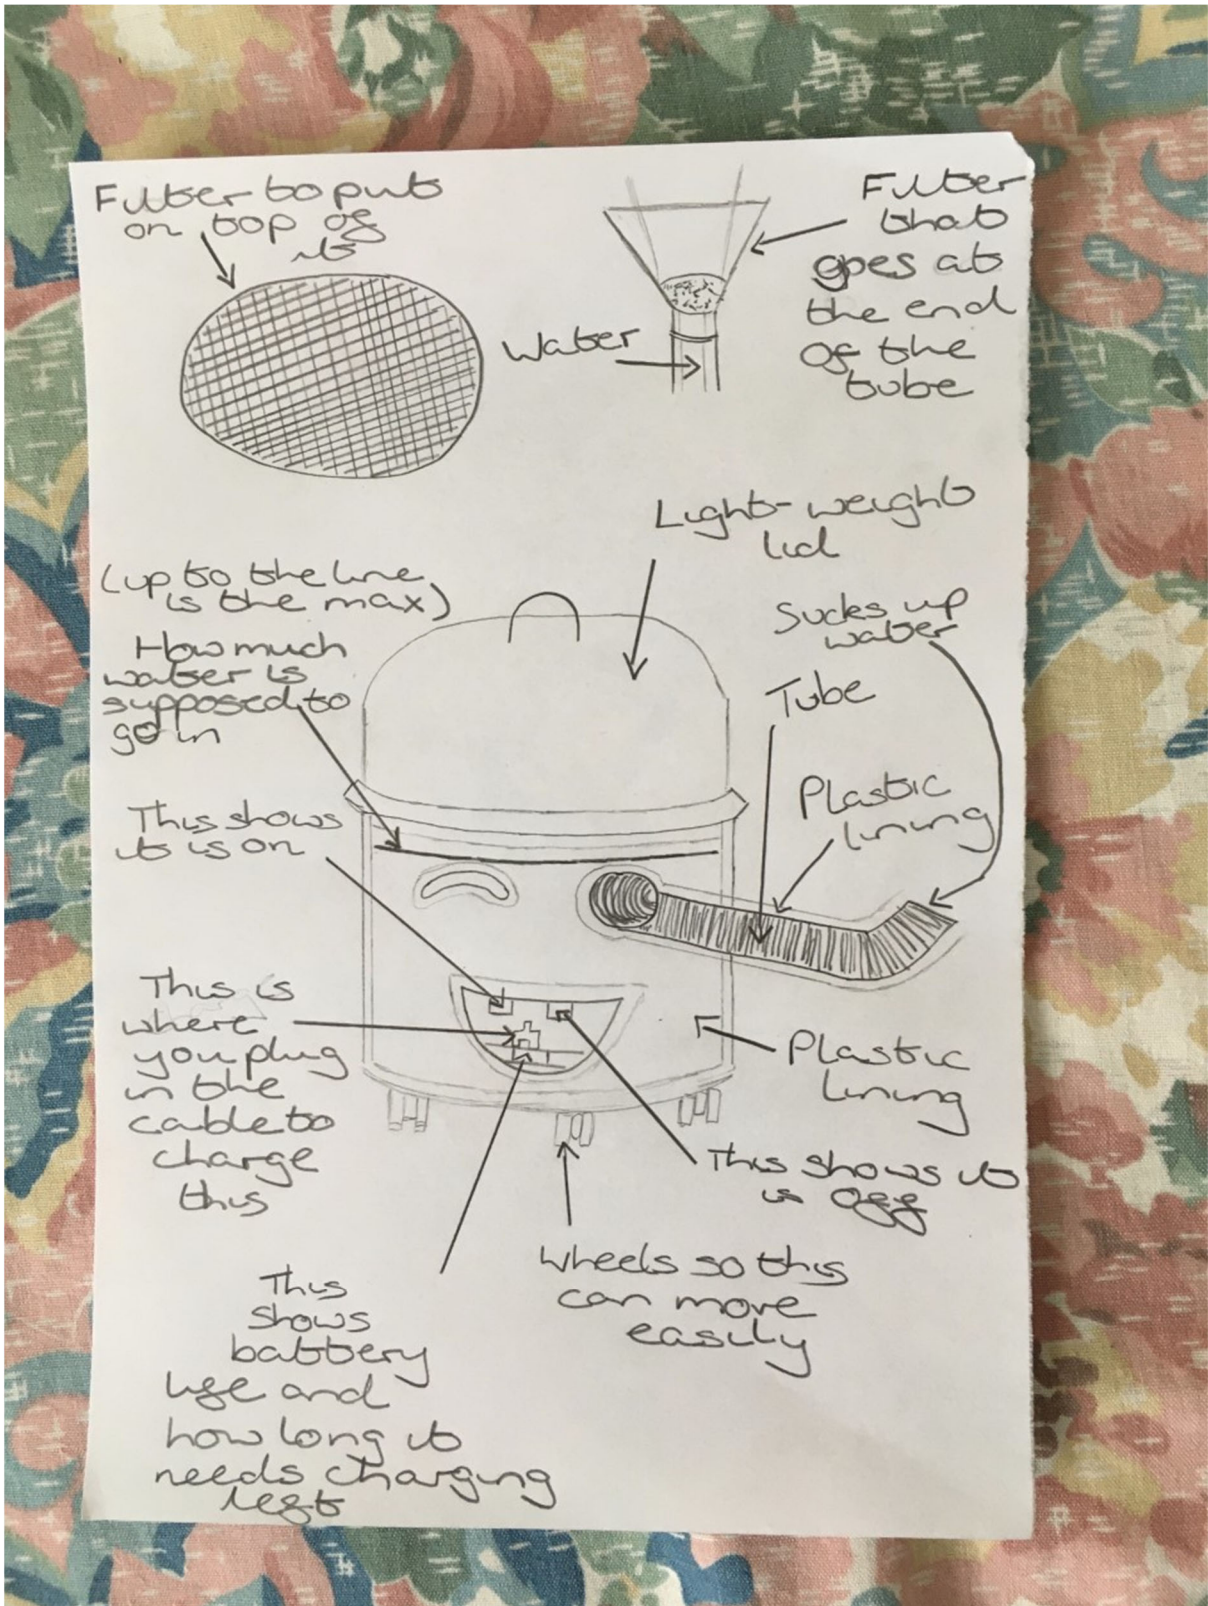 Filter to put
on top of
it
Filter
that
goes at
the end
of the
tube
Water
Light-weight
lid
(up to the line
is the max)
How much
water is
supposed to
go in
Sucks up
water
Tube
Plastic
lining
This shows
it is on
This is
where
you plug
in the
cable to
charge
this
Plastic
lining
This shows it
is off
Wheels so this
can move
easily
This
shows
battery
life and
how long it
needs charging
left